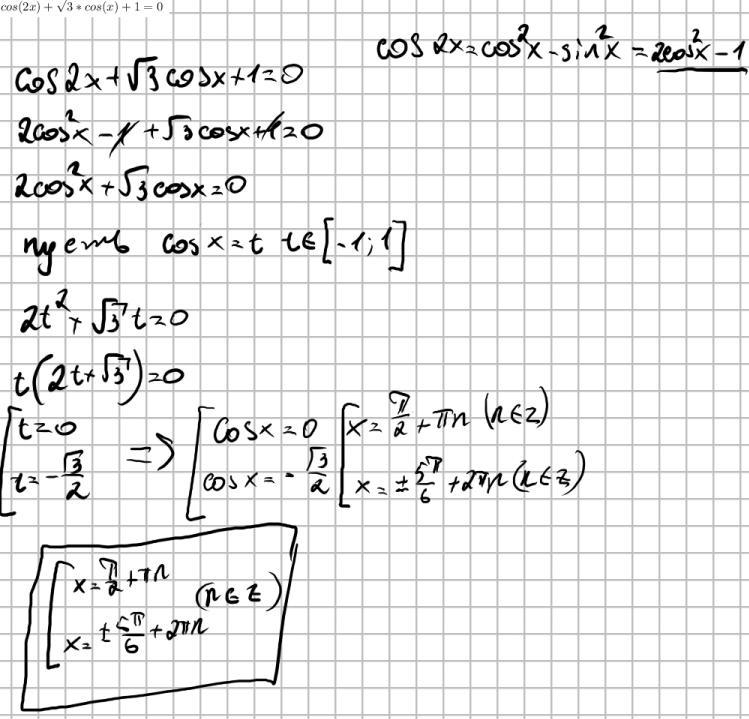 cos(2x) + √3 * cos(x) + 1 = 0
cos 2x = cos²x - sin²x = 2cos²x - 1
cos 2x + √3 cos x + 1 = 0
2cos²x - 1 + √3 cos x + 1 = 0
2cos²x + √3 cos x = 0
пусть cos x = t t ∈ [-1; 1]
2t² + √3 t = 0
t(2t + √3) = 0
[ t = 0 => [ cos x = 0 [ x = π/2 + πn (n ∈ Z)
t = -√3/2 cos x = -√3/2 x = ± 5π/6 + 2πn (n ∈ Z)
[ x = π/2 + πn (n ∈ Z)
x = ± 5π/6 + 2πn